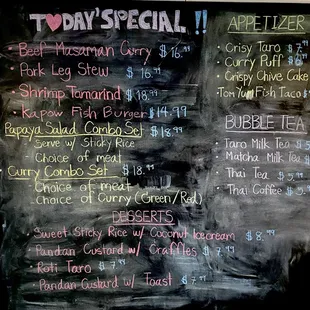 T♥DAY'SPECIAL !!
• Beef Masaman Curry $16.99
• Pork Leg Stew $16.99
• Shrimp Tamarind $18.99
• Kapow Fish Burger $14.99
Papaya Salad Combo Set $18.99
- Serve w/ Sticky Rice
- Choice of meat
Curry Combo Set $18.99
- Choice of meat
- Choice of Curry (Green/Red)
DESSERTS
• Sweet Sticky Rice w/ Coconut Icecream $8.99
• Pandan Custard w/ Craffles $7.99
• Roti Taro $7.99
• Pandan Custard w/ Toast $7.99
APPETIZER
• Crisy Taro $7.99
• Curry Puff
• Crispy Chive Cake
• Tom Yum Fish Taco
BUBBLE TEA
• Taro Milk Tea
• Matcha Milk Tea
• Thai Tea
• Thai Coffee